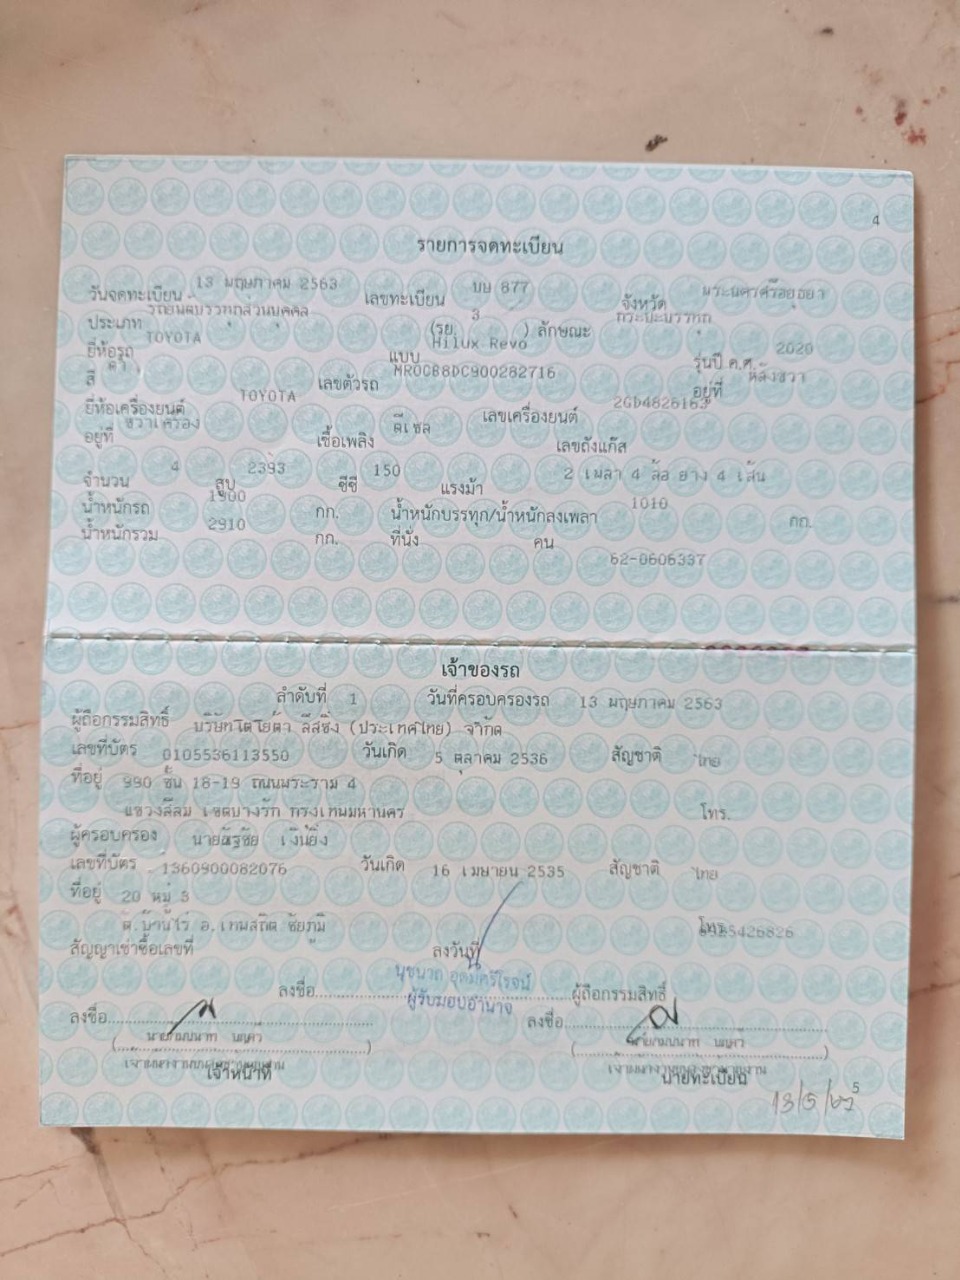 4
รายการจดทะเบียน
วันจดทะเบียน 13 พฤษภาคม 2563 เลขทะเบียน บษ 877 จังหวัด พระนครศรีอยุธยา
ประเภท รถยนต์บรรทุกส่วนบุคคล (รย. 3 ) ลักษณะ กระบะบรรทุก
ยี่ห้อรถ TOYOTA แบบ Hilux Revo รุ่นปี ค.ศ. 2020
สี ดำ เลขตัวรถ MR0CB8DC900282716 อยู่ที่ หลังขวา
ยี่ห้อเครื่องยนต์ TOYOTA เลขเครื่องยนต์ 2GD4826163
อยู่ที่ ขวาเครื่อง เชื้อเพลิง ดีเซล เลขถังแก๊ส
จำนวน 4 สูบ 2393 ซีซี 150 แรงม้า 2 เพลา 4 ล้อ ยาง 4 เส้น
น้ำหนักรถ 1900 กก. น้ำหนักบรรทุก/น้ำหนักลงเพลา 1010 กก.
น้ำหนักรวม 2910 กก. ที่นั่ง คน
62-0606337
เจ้าของรถ
ลำดับที่ 1 วันที่ครอบครองรถ 13 พฤษภาคม 2563
ผู้ถือกรรมสิทธิ์ บริษัทโตโยต้า ลีสซิ่ง (ประเทศไทย) จำกัด
เลขที่บัตร 0105536113550 วันเกิด 5 ตุลาคม 2536 สัญชาติ ไทย
ที่อยู่ 990 ชั้น 18-19 ถนนพระราม 4
แขวงสีลม เขตบางรัก กรุงเทพมหานคร โทร.
ผู้ครอบครอง นายณัฐชัย เงินยิ่ง
เลขที่บัตร 1360900082076 วันเกิด 16 เมษายน 2535 สัญชาติ ไทย
ที่อยู่ 20 หมู่ 3
ต.บ้านไร่ อ.เทพสถิต ชัยภูมิ โทร.
สัญญาเช่าซื้อเลขที่ ลงวันที่
ลงชื่อ ผู้ถือกรรมสิทธิ์
นุชนาถ อุดมศิริโรจน์
ผู้รับมอบอำนาจ
ลงชื่อ ลงชื่อ
เจ้าหน้าที่ นายทะเบียน
13/5/63
5